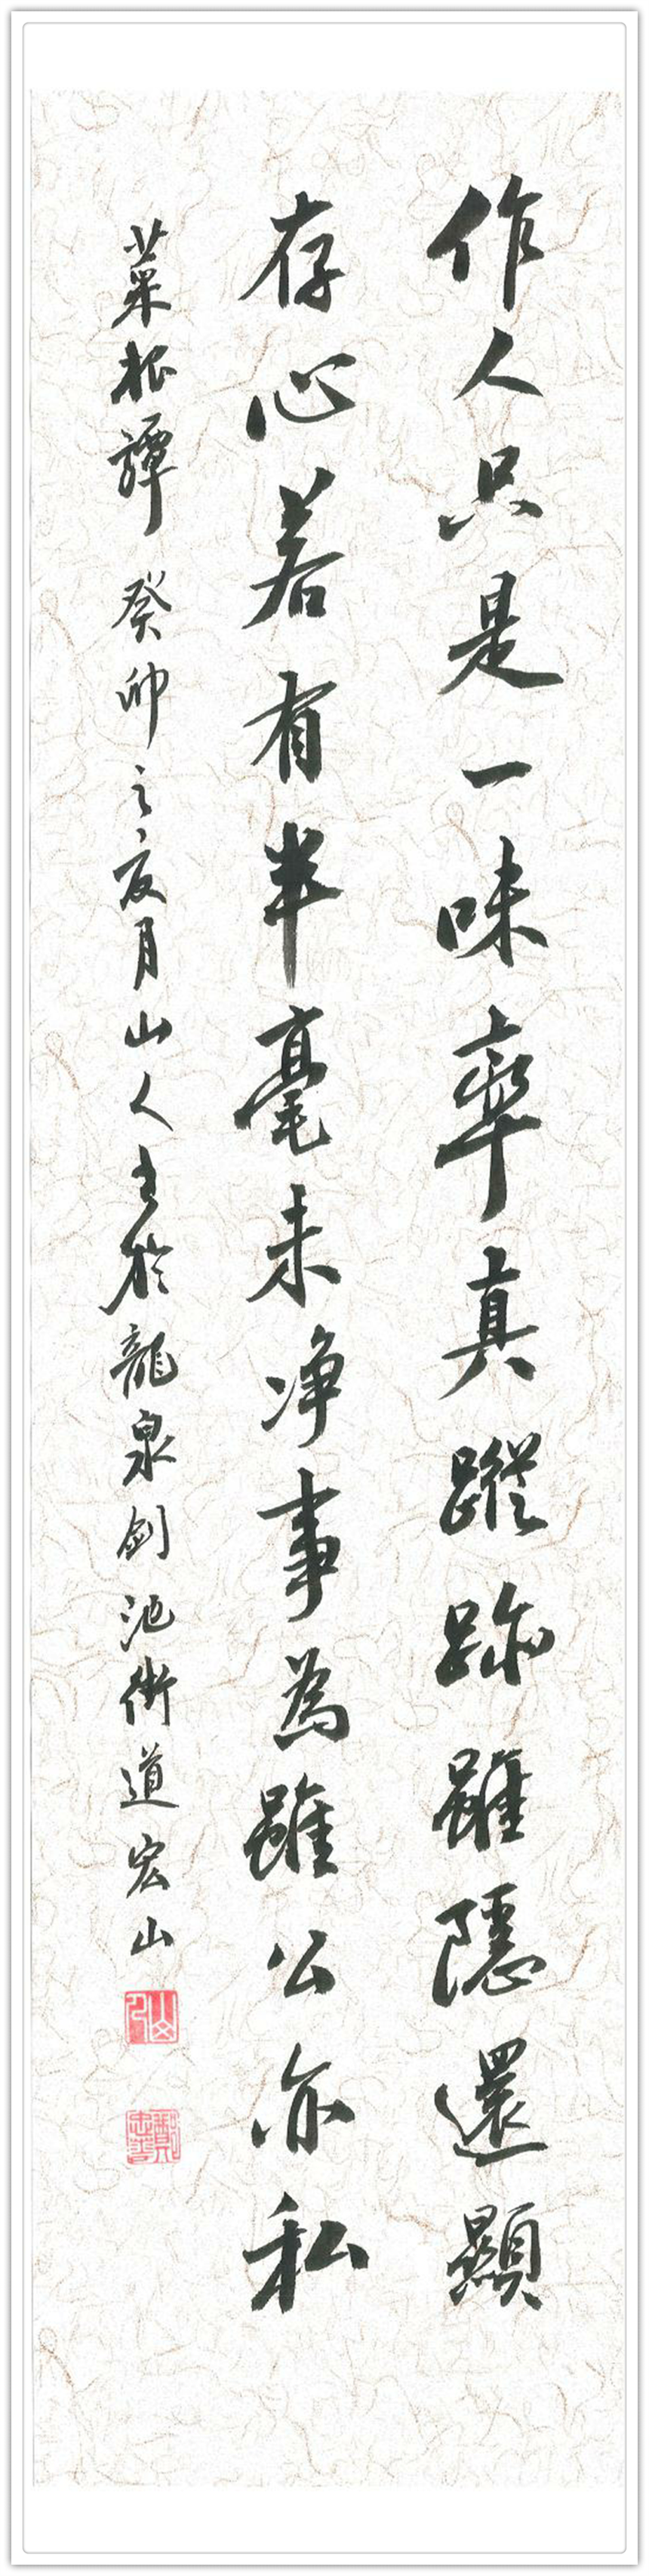 作人只是一味率真蹤跡雖隱還顯
存心若有半毫未净事為雖公亦私
菜根譚 癸卯之夏月山人书於龍泉劍池街道宏山